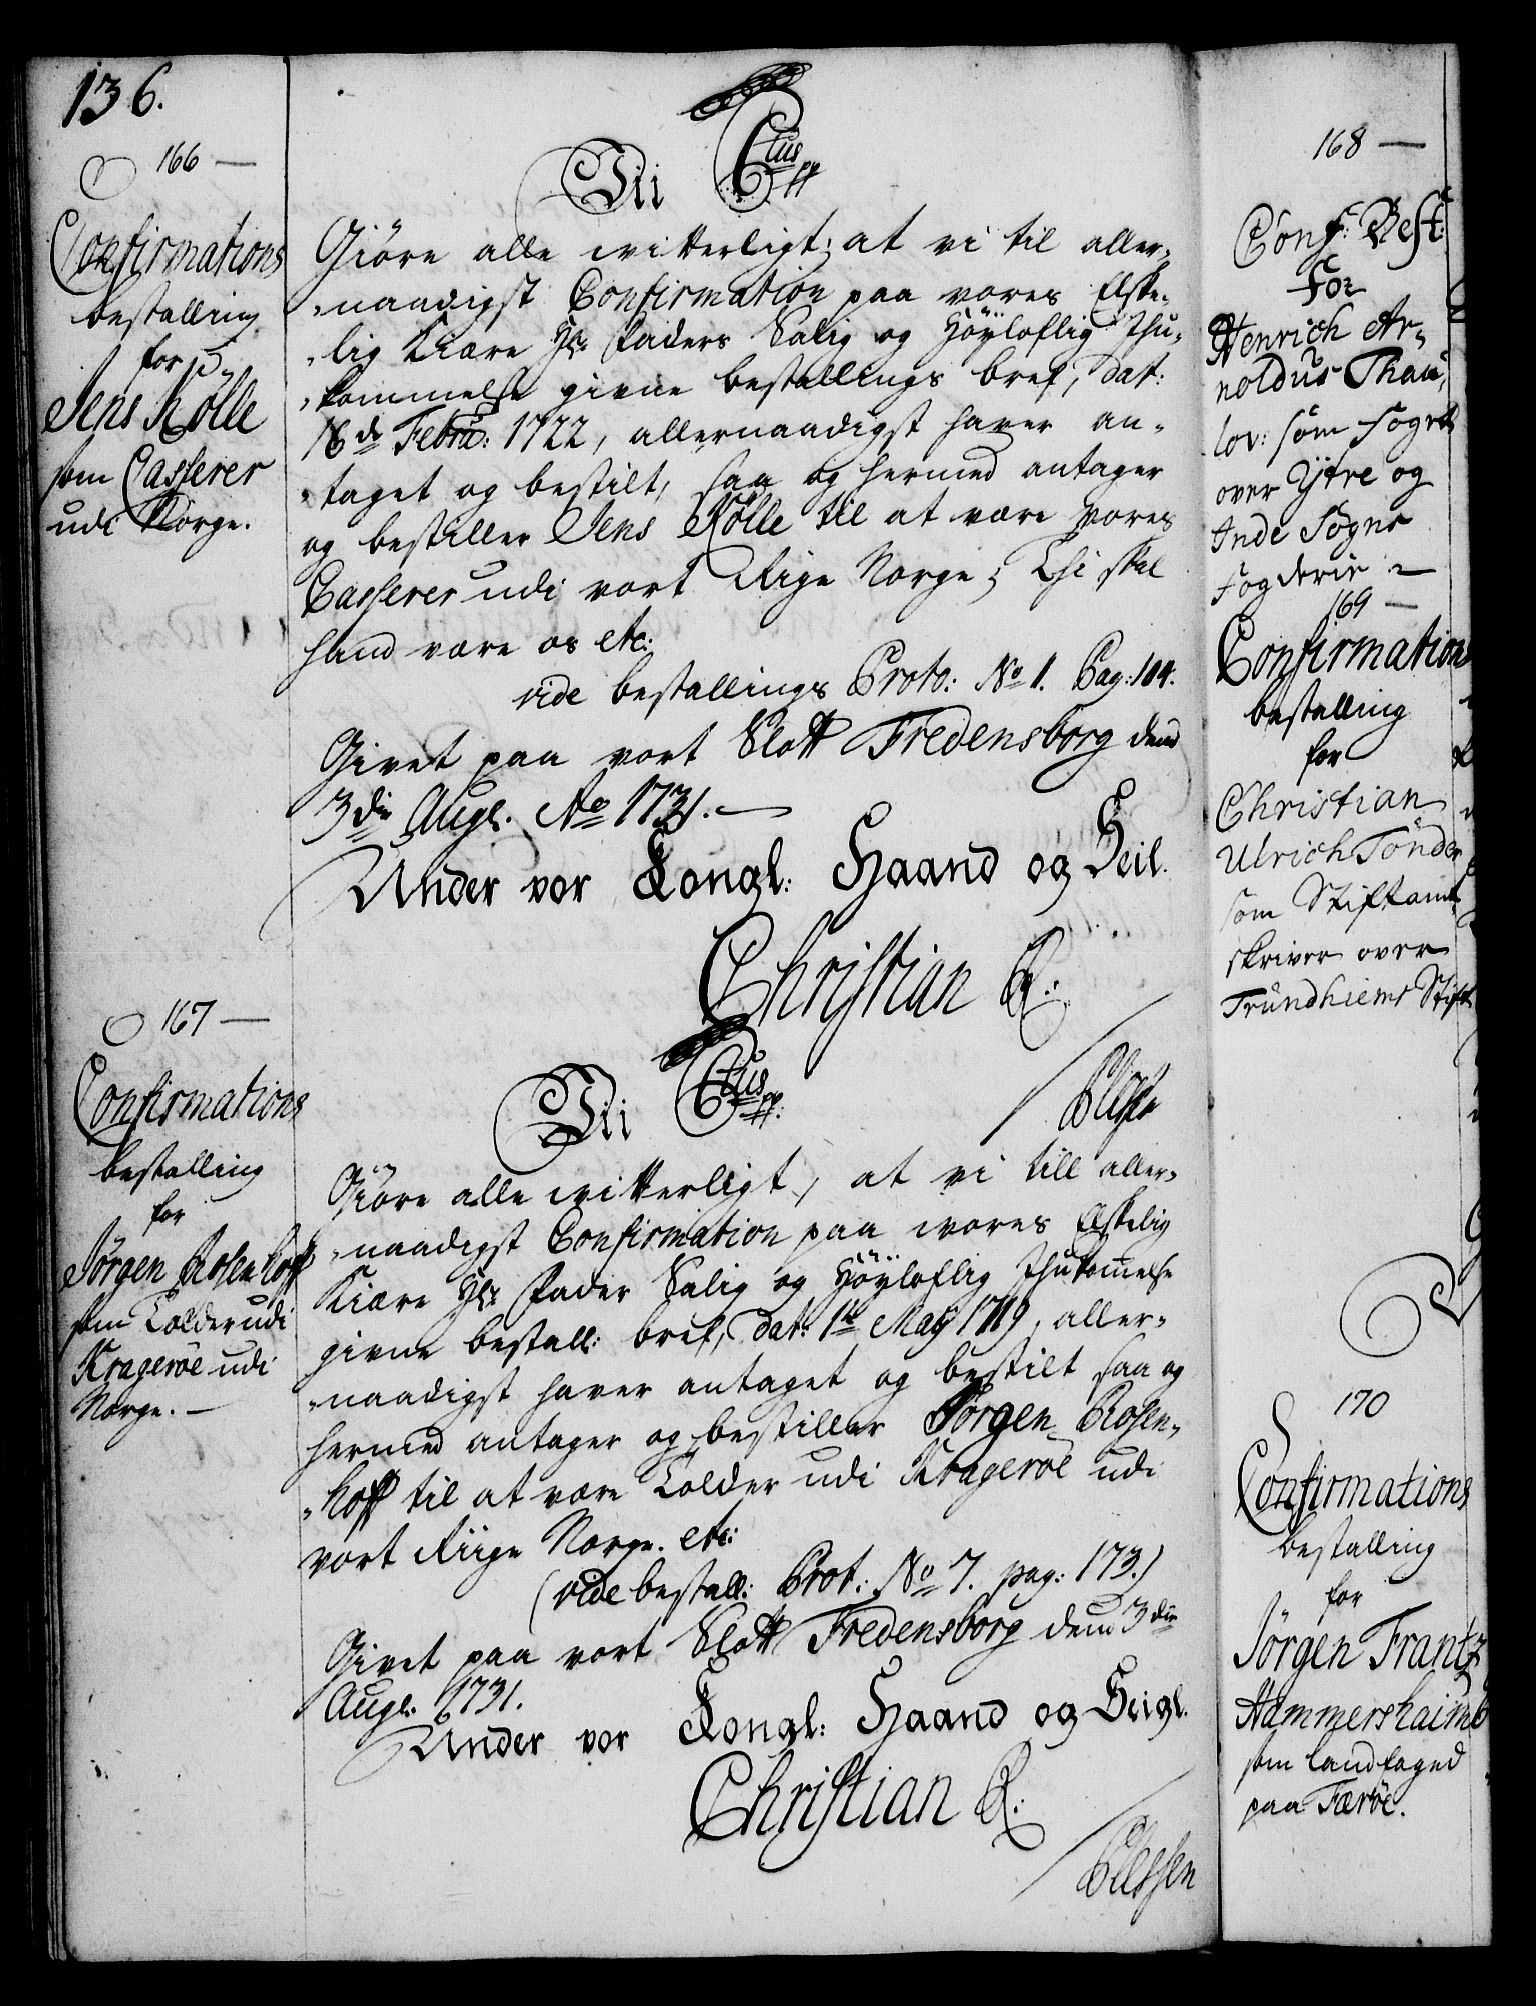 136.
166
Confirmations
bestalling
for
Jens Kølle
som Casserer
udi Norge.
Vii Ctus pp
Giöre alle witterligt, at vi til aller-
naadigst Confirmation paa vores Elske-
lig Kiære Hr Faders Salig og Höyloflig Ihu-
kommelse givne bestallings bref, dat:
16de Febru: 1722, allernaadigst haver an-
taget og bestilt, saa og hermed antager
og bestiller Jens Kølle til at være vores
Casserer udi vort Rige Norge; Thi skal
hand være os etc:
vide bestallings Proto: No 1. Pag: 104.
Givet paa vort Slott Fredensborg dend
3die Aug. Ao 1731.
Under vor Kongl: Haand og Seil.
Christian R:
167
Confirmations
bestalling
for
Jörgen Rosenhoff
som Tolder udi
Krageröe udi
Norge.
Vii Ctus pp.
Giöre alle witterligt, at vi till aller-
naadigst Confirmation paa wores Elskelig
Kiære Hr Fader Salig og Höyloflig Ihukommelse
givne bestall: bref, dat: 1te Maij 1719, aller-
naadigst haver antaget og bestilt saa og
hermed antager og bestiller Jörgen Rosen-
hoff til at være Tolder udi Krageröe udi
vort Riige Norge. etc:
(vide bestall: Prot: No 7. pag: 173.)
Givet paa vort Slott Fredensborg dend 3die
Aug: 1731.
Under vor Kongl: Haand og Seigl.
Christian R:
168
Conf: Best:
For
Henrich Ar-
noldus Thau-
lov: som Foget
over Ytre og
Inde Sogns
Fogderie
169
Confirmations
bestalling
for
Christian
Ulrich Tönder
som Stiftamt-
skriver over
Trundhiems Stift
170
Confirmations
bestalling
for
Jörgen Frantz
Hammershaimb
som landfoged
paa Færöe.